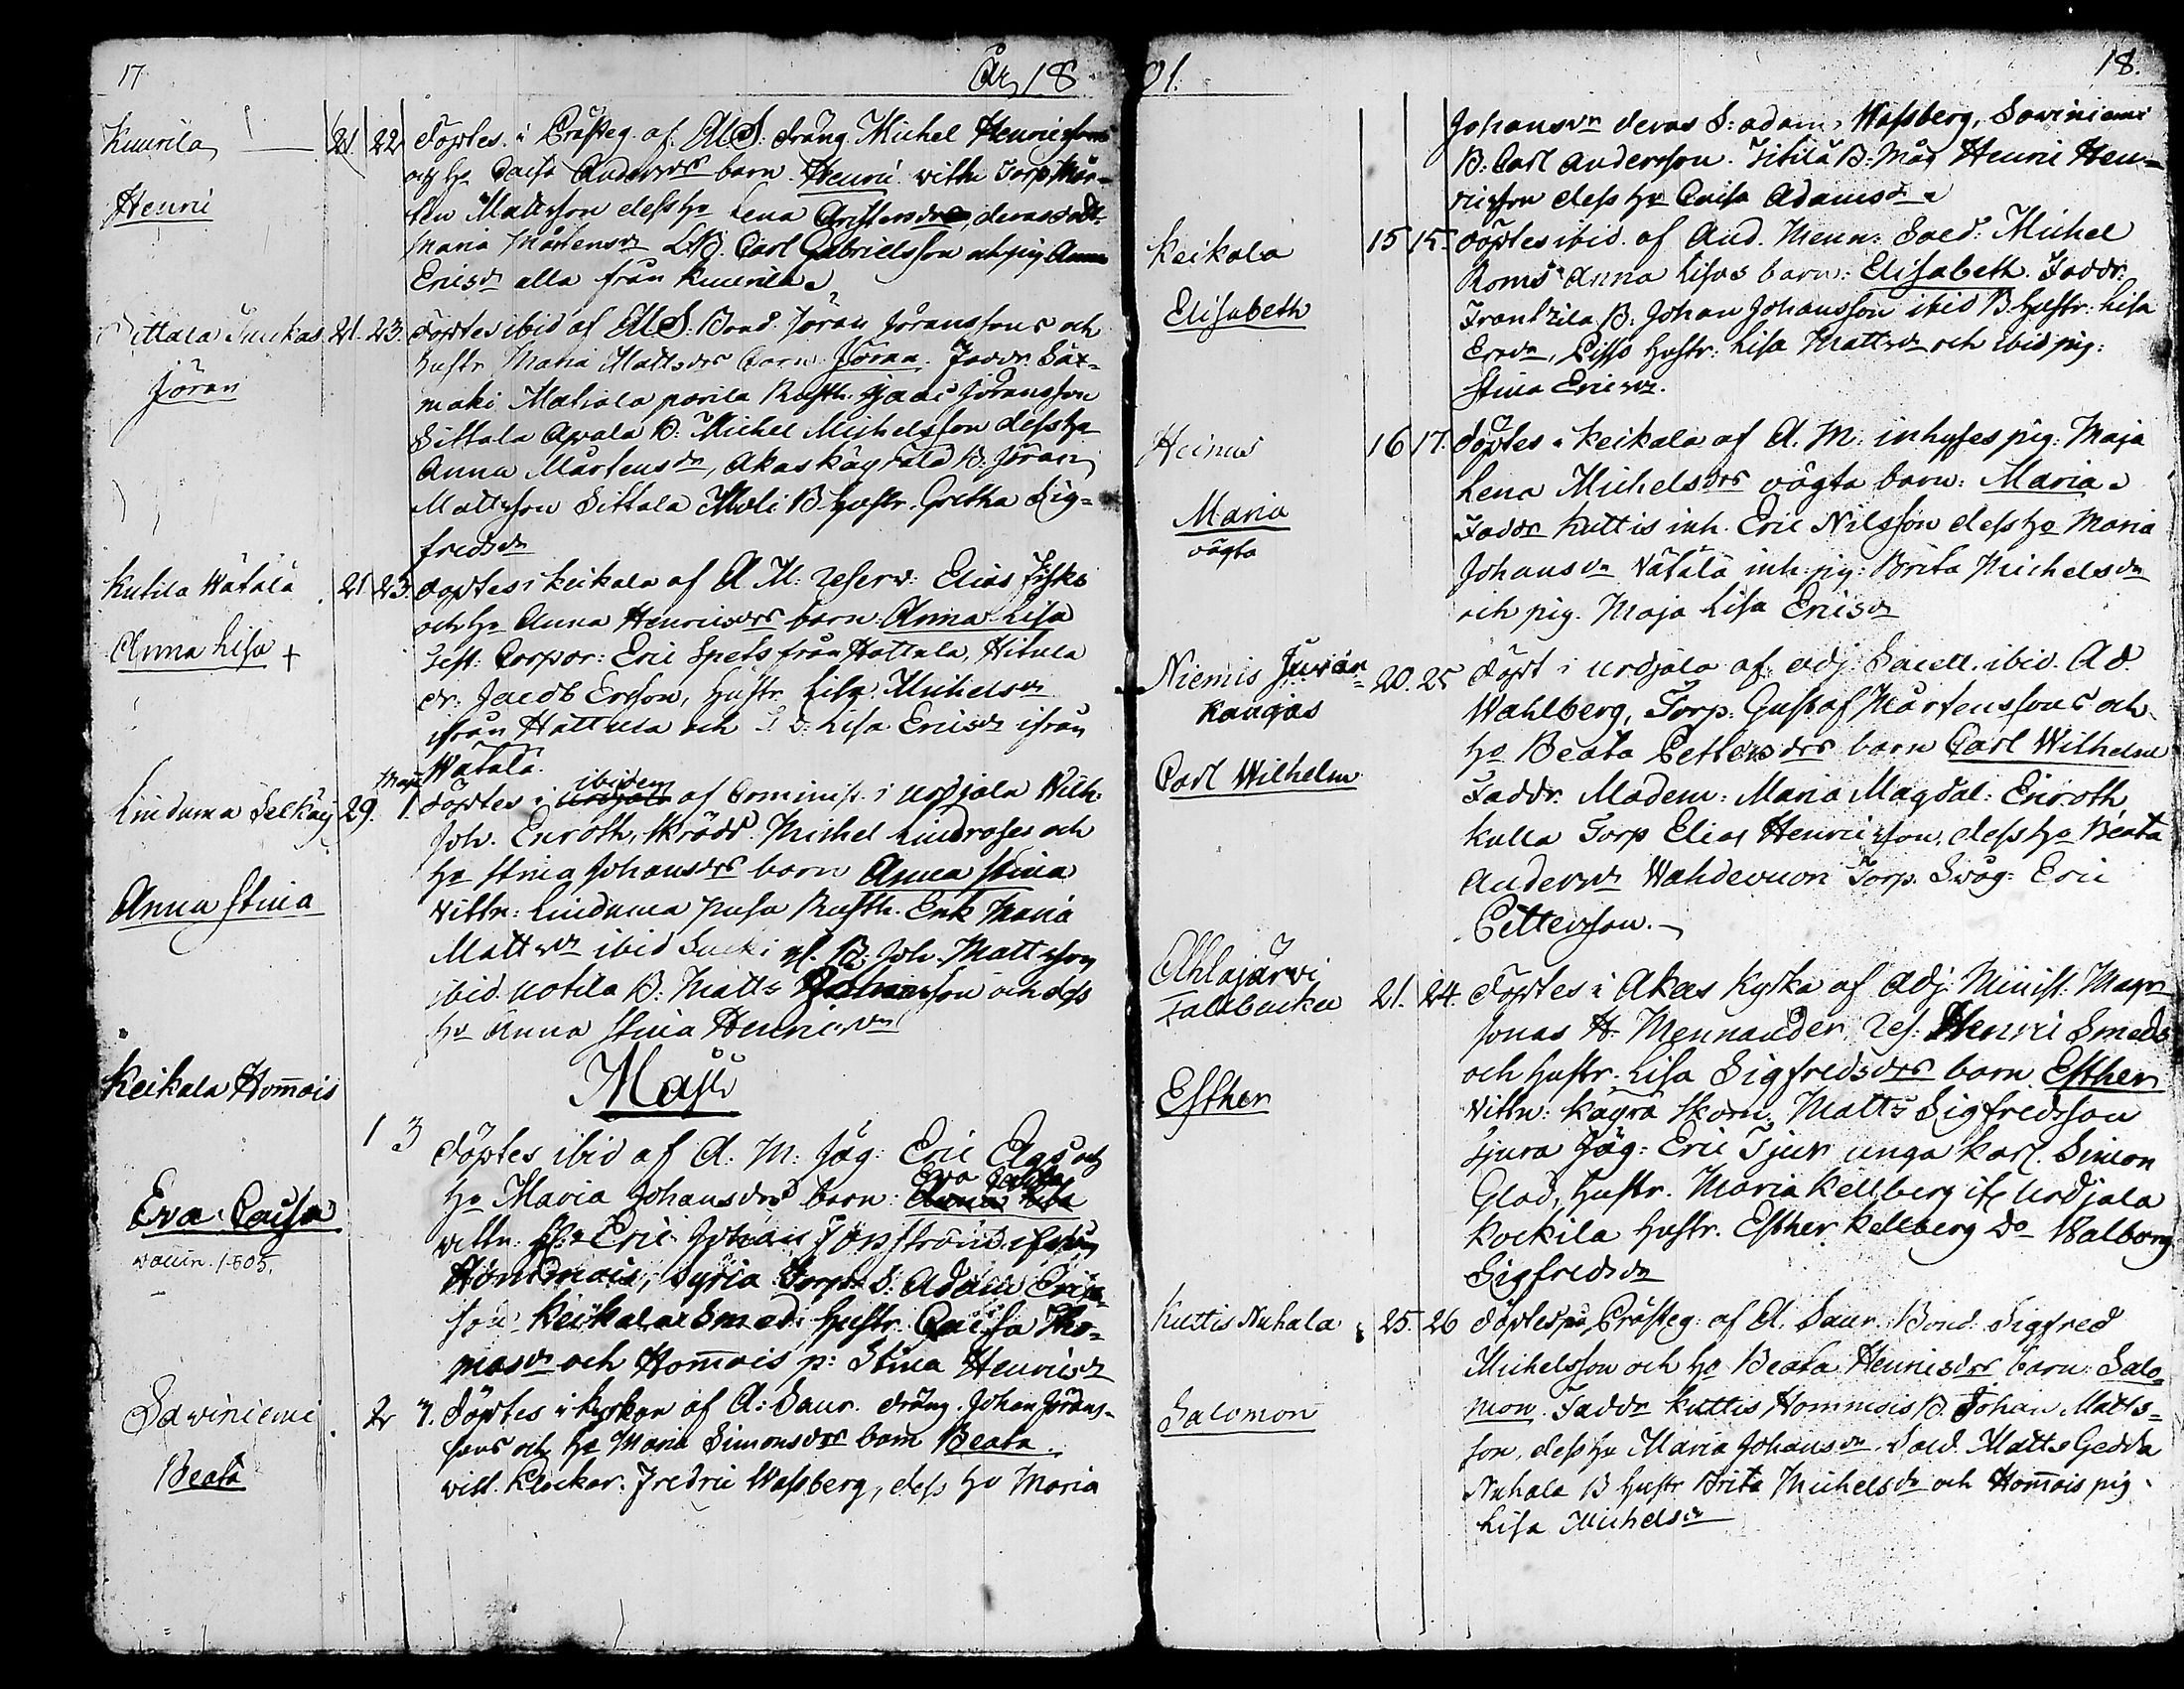 17.
År 18
Kuurila
Henric
21. 22. Döptes i Prästeg. af A. S. dräng. Michel Henricssons
och H:o Caisa Andersdrs barn Henric. vittn Torp. Mår-
ten Mattsson dess H:o Lena Christersdr, deras dotr
Maria Mårtensdr Carl Gabrielsson och pig Anna
Ericsdr alla från Kuurila.
Sittala Junkas
Jöran
21. 23. Döptes ibid af A. S. Bond. Jöran Jöranssons och
Hustr. Maria Mattsdrs barn: Jöran. Faddr. Säx-
mäki Matiala parila Rusth. Jöransson
Sittala Apala B. Michel Michelsson dess H:o
Anna Mårtensdr, Akas Jöran
Mattsson Sittala B. Hustr. Gretha Sig-
fredsdr
Kutila Wätälä
Anna Lisa +
21 23. Döptes i Keikala af A. M: reserv: Elias Fisks
och H:o Anna Henricsdrs barn: Anna Lisa
Test: Corpor: Eric Spets från Hattula, Hitula
dr: Jacob Ersson, Hustr. Lisa Michelsdr
ifrån Hattula och Lisa Ericsdr ifrån
Wätälä.
Linduma Selkäy
Anna Stina
29. Maji 1. Döptes i ibidem af Cominist. i Urdjala Wilh.
Joh. Enroth, Skrädd. Michel Lindroses och
H:o Stina Johansdrs barn Anna Stina
Vittn: Linduma Pusa Rusth. Enk Maria
Mattsdr ibid B. Joh. Mattsson
ibid. Uotila B. Matts Johansson och dess
H:o Anna Stina Henricsdr
Maji
Keikala Hom̄ois
Eva Caisa
vaccin. 1805.
1 3 Döptes ibid af A. M. Jäg: Eric Ags och
H:o Maria Johansdrs barn: Eva Caisa
vittn: Eric Johan ifrån
Hommois, Syria Torp. S: Adam Erics-
son Keikala Smed: Hustr. Caisa Tho-
masdr och Hom̄ois p: Stina Henricsdr
Sawiniemi
Beata
2 3. Döptes i Kyrkan af A: Saur. dräng. Johan Jörans-
sons och H:o Maria Simonsdrs barn Beata.
vitt. Klockar. Fredric Wassberg, dess H:o Maria
01.
18.
Johansdr deras S: adam, Wassberg, Sawiniemi
B: Carl Andersson. Jitilä B: Måg Henric Hen-
ricsson dess H:o Caisa Adamsdr
Keikala
Elisabeth
15 15. Döptes ibid. af And. Menn: Sold: Michel
Roms Anna Lisas barn: Elisabeth. Faddr:
Frantsila B: Johan Johansson ibid B Hustr: Lisa
Ersdr, Hustr: Lisa Mattsdr och ibid pig:
Stina Ericsdr.
Heinus
Maria
oägta
16 17. Döptes i Keikala af A. M: inhyses pig: Maja
Lena Michelsdrs oägta barn: Maria.
Faddr Kuttis inh. Eric Nilsson dess H:o Maria
Johansdr Wätälä inh: pig: Brita Michelsdr
och pig. Maja Lisa Ericsdr
Niemis Juvan-
kangas
Carl Wilhelm
20. 25 Döpt i Urdjala af: Adj: Sacell. ibid. Ad.
Wahlberg, Torp: Gustaf Mårtenssons och
H:o Beata Pettersdrs barn Carl Wilhelm
Faddr. Madem: Maria Magdal: Enroth
Kulla Torp Elias Henricsson, dess H:o Beata
Andersdr Wahdevuori Torp. Swåg: Eric
Pettersson.
Ahlajärvi
Taldbacka
Esther
21. 24. Döptes i Akas Kyrka af Adj: Minist. Magr
Jonas H. Mennander. Res: Henric Smeds
och Hustr. Lisa Sigfredsdrs barn Esther
Vittn: Käyrä Skom: Matts Sigfredsson
Tjura Jäg: Eric Tjur unga karl. Simon
Glad, Hustr. Maria Kellberg Urdjala
Kockila Hustr. Esther Kellberg Do Walborg
Sigfredsdr
Kuttis Nuhala
Salomon
25. 26 Döptes på Prästeg: af A. Saur. Bond. Sigfred
Michelsson och H:o Beata Henricsdrs barn: Salo-
mon. Faddr Kuttis Hommois B. Johan Matts-
son, dess H:o Maria Johansdr. Sold. Matts Gedda
Nuhala B Hustr Brita Michelsdr och Hom̄ois pig
Lisa Michelsdr